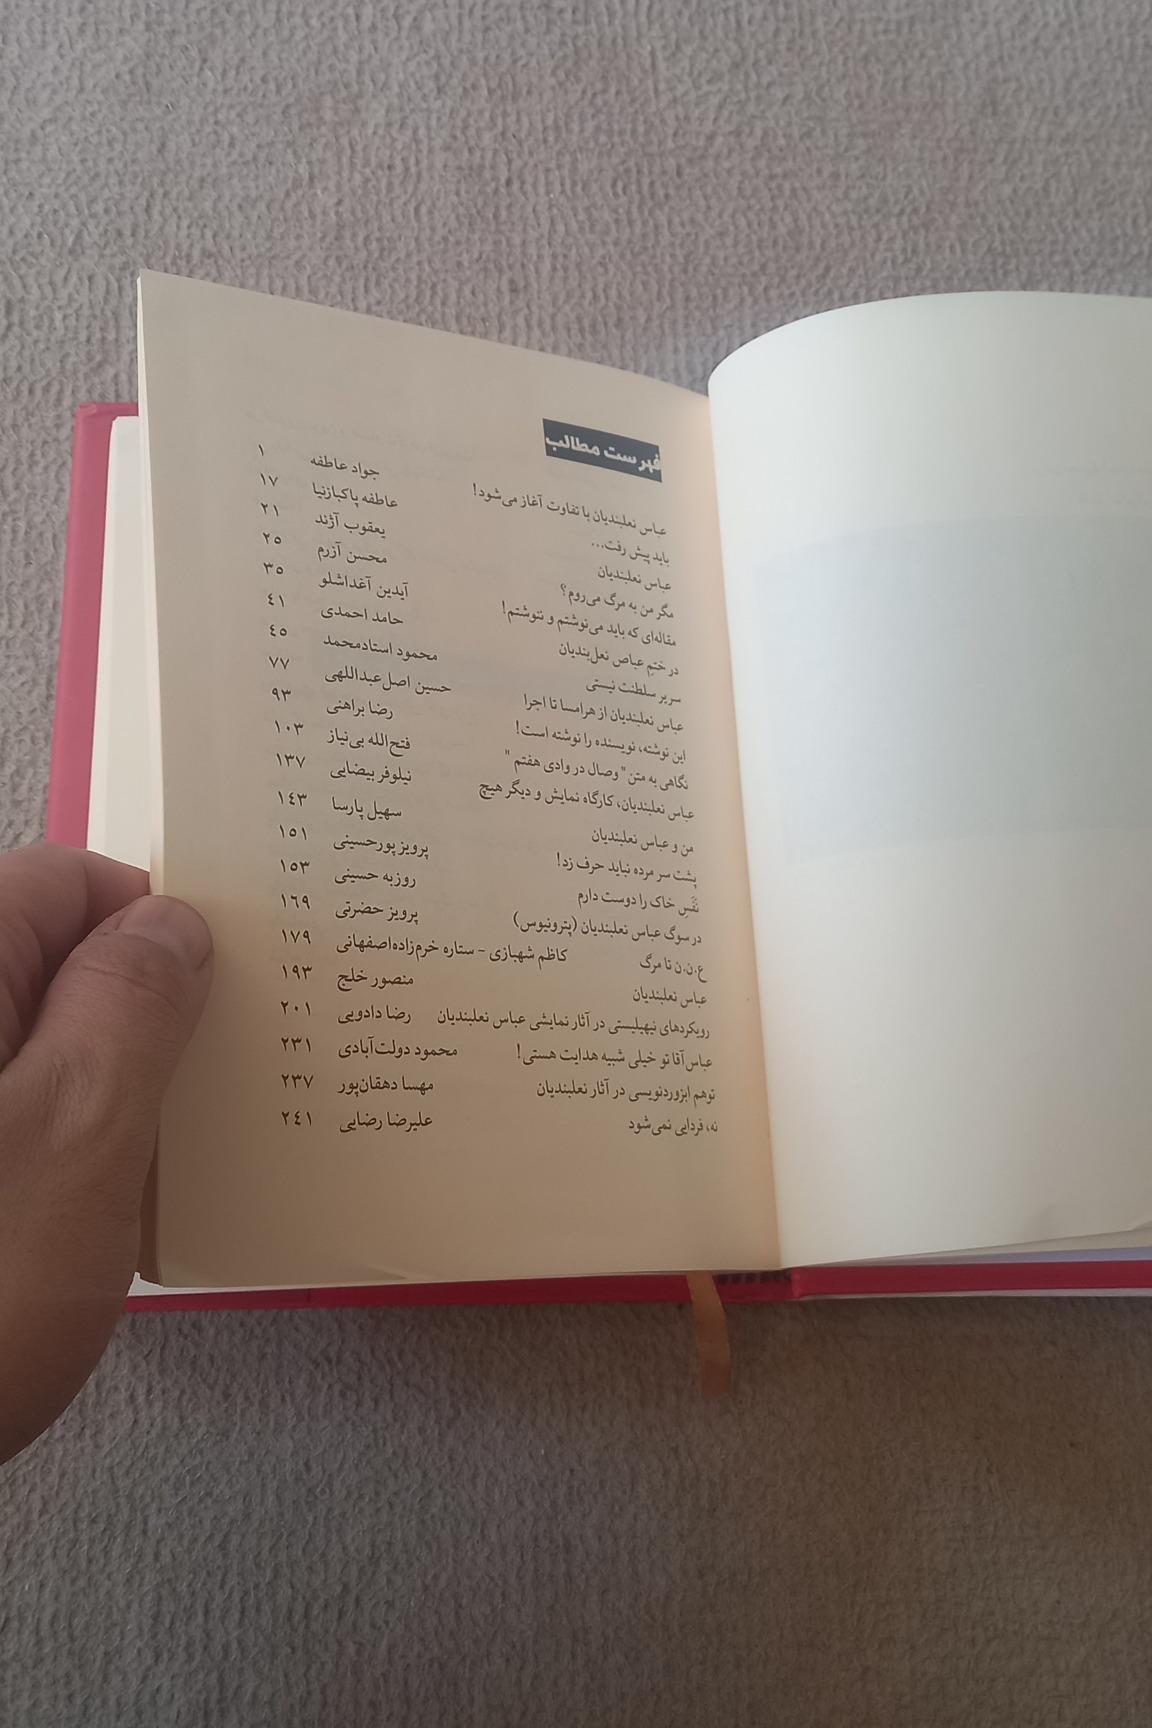 فهرست مطالب
عباس نعلبندیان با تفاوت آغاز می‌شود! جواد عاطفه ١
باید پیش رفت... عاطفه پاکبازنیا ١٧
عباس نعلبندیان یعقوب آژند ٢١
مگر من به مرگ می‌روم؟ محسن آزرم ٢٥
مقاله‌ای که باید می‌نوشتم و ننوشتم! آیدین آغداشلو ٣٥
در ختمِ عباص نعل‌بندیان حامد احمدی ٤١
سریر سلطنت نیستی محمود استادمحمد ٤٥
عباس نعلبندیان از هرامسا تا اجرا حسین اصل‌عبداللهی ٧٧
این نوشته، نویسنده را نوشته است! رضا براهنی ٩٣
نگاهی به متن "وصال در وادی هفتم" فتح‌الله بی‌نیاز ١٠٣
عباس نعلبندیان، کارگاه نمایش و دیگر هیچ نیلوفر بیضایی ١٣٧
من و عباس نعلبندیان سهیل پارسا ١٤٣
پشت سر مرده نباید حرف زد! پرویز پورحسینی ١٥١
نَفَسِ خاک را دوست دارم روزبه حسینی ١٥٣
در سوگ عباس نعلبندیان (پترونیوس) پرویز حضرتی ١٦٩
ع.ن.ن تا مرگ کاظم شهبازی - ستاره خرم‌زاده‌اصفهانی ١٧٩
عباس نعلبندیان منصور خلج ١٩٣
رویکردهای نیهیلیستی در آثار نمایشی عباس نعلبندیان رضا دادویی ٢٠١
عباس‌آقا تو خیلی شبیه هدایت هستی! محمود دولت‌آبادی ٢٣١
توهم ابزوردنویسی در آثار نعلبندیان مهسا دهقان‌پور ٢٣٧
نه، فردایی نمی‌شود علیرضا رضایی ٢٤١